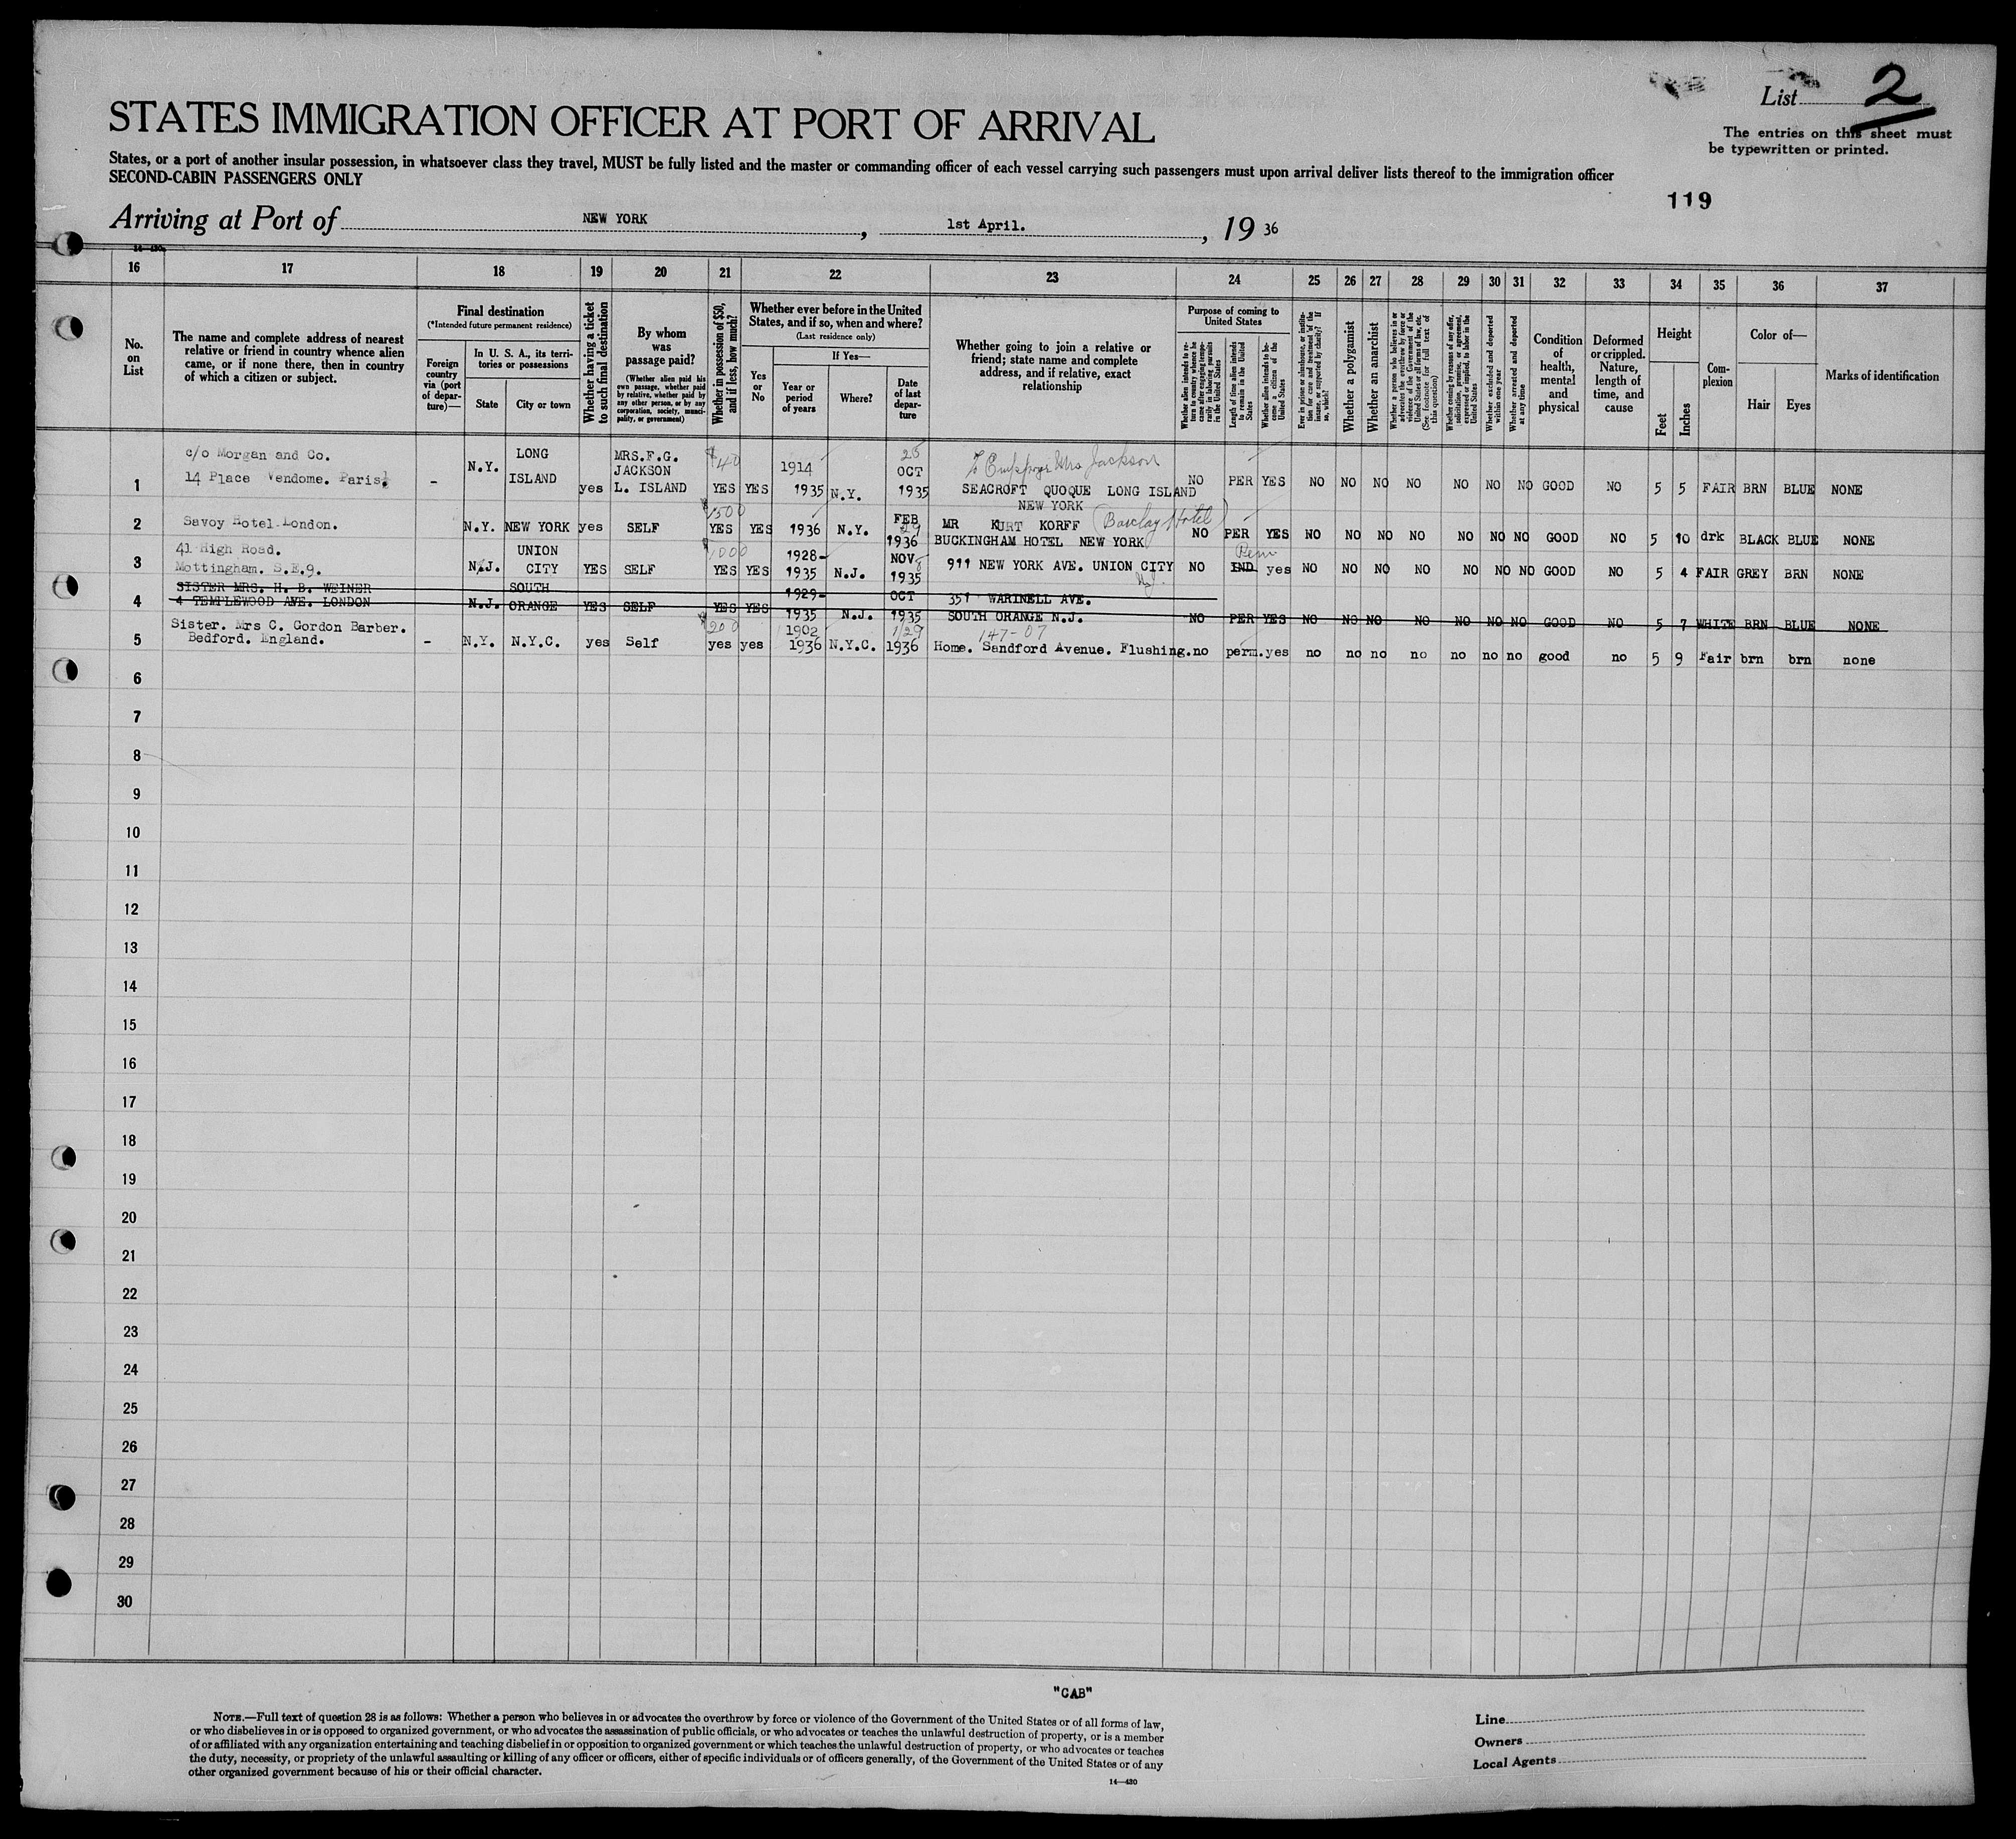 List 2
The entries on this sheet must
be typewritten or printed.
STATES IMMIGRATION OFFICER AT PORT OF ARRIVAL
States, or a port of another insular possession, in whatsoever class they travel, MUST be fully listed and the master or commanding officer of each vessel carrying such passengers must upon arrival deliver lists thereof to the immigration officer
SECOND-CABIN PASSENGERS ONLY
119
Arriving at Port of NEW YORK, 1st April., 19 36
16 17 18 19 20 21 22 23 24 25 26 27 28 29 30 31 32 33 34 35 36 37
No. on List
The name and complete address of nearest
relative or friend in country whence alien
came, or if none there, then in country
of which a citizen or subject.
Final destination
(*Intended future permanent residence)
Foreign country via (port of departure)—
In U. S. A., its territories or possessions
State
City or town
Whether having a ticket to such final destination
By whom was passage paid?
(Whether alien paid his own passage, whether paid by relative, whether paid by any other person, or by any corporation, society, municipality, or government)
Whether in possession of $50, and if less, how much?
Whether ever before in the United States, and if so, when and where?
(Last residence only)
Yes or No
If Yes—
Year or period of years
Where?
Date of last departure
Whether going to join a relative or
friend; state name and complete
address, and if relative, exact
relationship
Purpose of coming to United States
Whether alien intends to return to country whence he came after engaging temporarily in laboring pursuits in the United States
Length of time alien intends to remain in the United States
Whether alien intends to become a citizen of the United States
Ever in prison or almshouse, or institution for care and treatment of the insane, or supported by charity? If so, which?
Whether a polygamist
Whether an anarchist
Whether a person who believes in or advocates the overthrow by force or violence of the Government of the United States or all forms of law, etc. (See footnote for full text of this question)
Whether coming by reason of any offer, solicitation, promise, or agreement, expressed or implied, to labor in the United States
Whether excluded and deported within one year
Whether arrested and deported at any time
Condition of health, mental and physical
Deformed or crippled. Nature, length of time, and cause
Height
Feet
Inches
Complexion
Color of—
Hair
Eyes
Marks of identification
c/o Morgan and Co. LONG MRS.F.G. $40 25 To Employer Mrs Jackson
14 Place Vendome. Paris. N.Y. ISLAND JACKSON 1914 OCT
1 - yes L. ISLAND YES YES 1935 N.Y. 1935 SEACROFT QUOQUE LONG ISLAND NO PER YES NO NO NO NO NO NO NO GOOD NO 5 5 FAIR BRN BLUE NONE
NEW YORK
$1500 FEB 29
2 Savoy Hotel London. N.Y. NEW YORK yes SELF YES YES 1936 N.Y. 1936 MR KURT KORFF (Barclay Hotel)
BUCKINGHAM HOTEL NEW YORK NO PER YES NO NO NO NO NO NO NO GOOD NO 5 10 drk BLACK BLUE NONE
41 High Road. UNION $1000 1928- NOV 8 Perm
3 Mottingham. S.E.9. N.J. CITY YES SELF YES YES 1935 N.J. 1935 911 NEW YORK AVE. UNION CITY N.J. NO IND yes NO NO NO NO NO NO NO GOOD NO 5 4 FAIR GREY BRN NONE
SISTER MRS. H. B. WEINER SOUTH 1929- OCT 351 WARINELL AVE.
4 4 TEMPLEWOOD AVE. LONDON N.J. ORANGE YES SELF YES YES 1935 N.J. 1935 SOUTH ORANGE N.J. NO PER YES NO NO NO NO NO NO NO GOOD NO 5 7 WHITE BRN BLUE NONE
Sister. Mrs C. Gordon Barber. $200 1902 1/29 147-07
5 Bedford. England. - N.Y. N.Y.C. yes Self yes yes 1936 N.Y.C. 1936 Home. Sandford Avenue. Flushing. no perm. yes no no no no no no no good no 5 9 Fair brn brn none
6
7
8
9
10
11
12
13
14
15
16
17
18
19
20
21
22
23
24
25
26
27
28
29
30
"CAB"
NOTE.—Full text of question 28 is as follows: Whether a person who believes in or advocates the overthrow by force or violence of the Government of the United States or of all forms of law,
or who disbelieves in or is opposed to organized government, or who advocates the assassination of public officials, or who advocates or teaches the unlawful destruction of property, or is a member
of or affiliated with any organization entertaining and teaching disbelief in or opposition to organized government or which teaches the unlawful destruction of property, or who advocates or teaches
the duty, necessity, or propriety of the unlawful assaulting or killing of any officer or officers, either of specific individuals or of officers generally, of the Government of the United States or of any
other organized government because of his or their official character.
14—430
Line
Owners
Local Agents